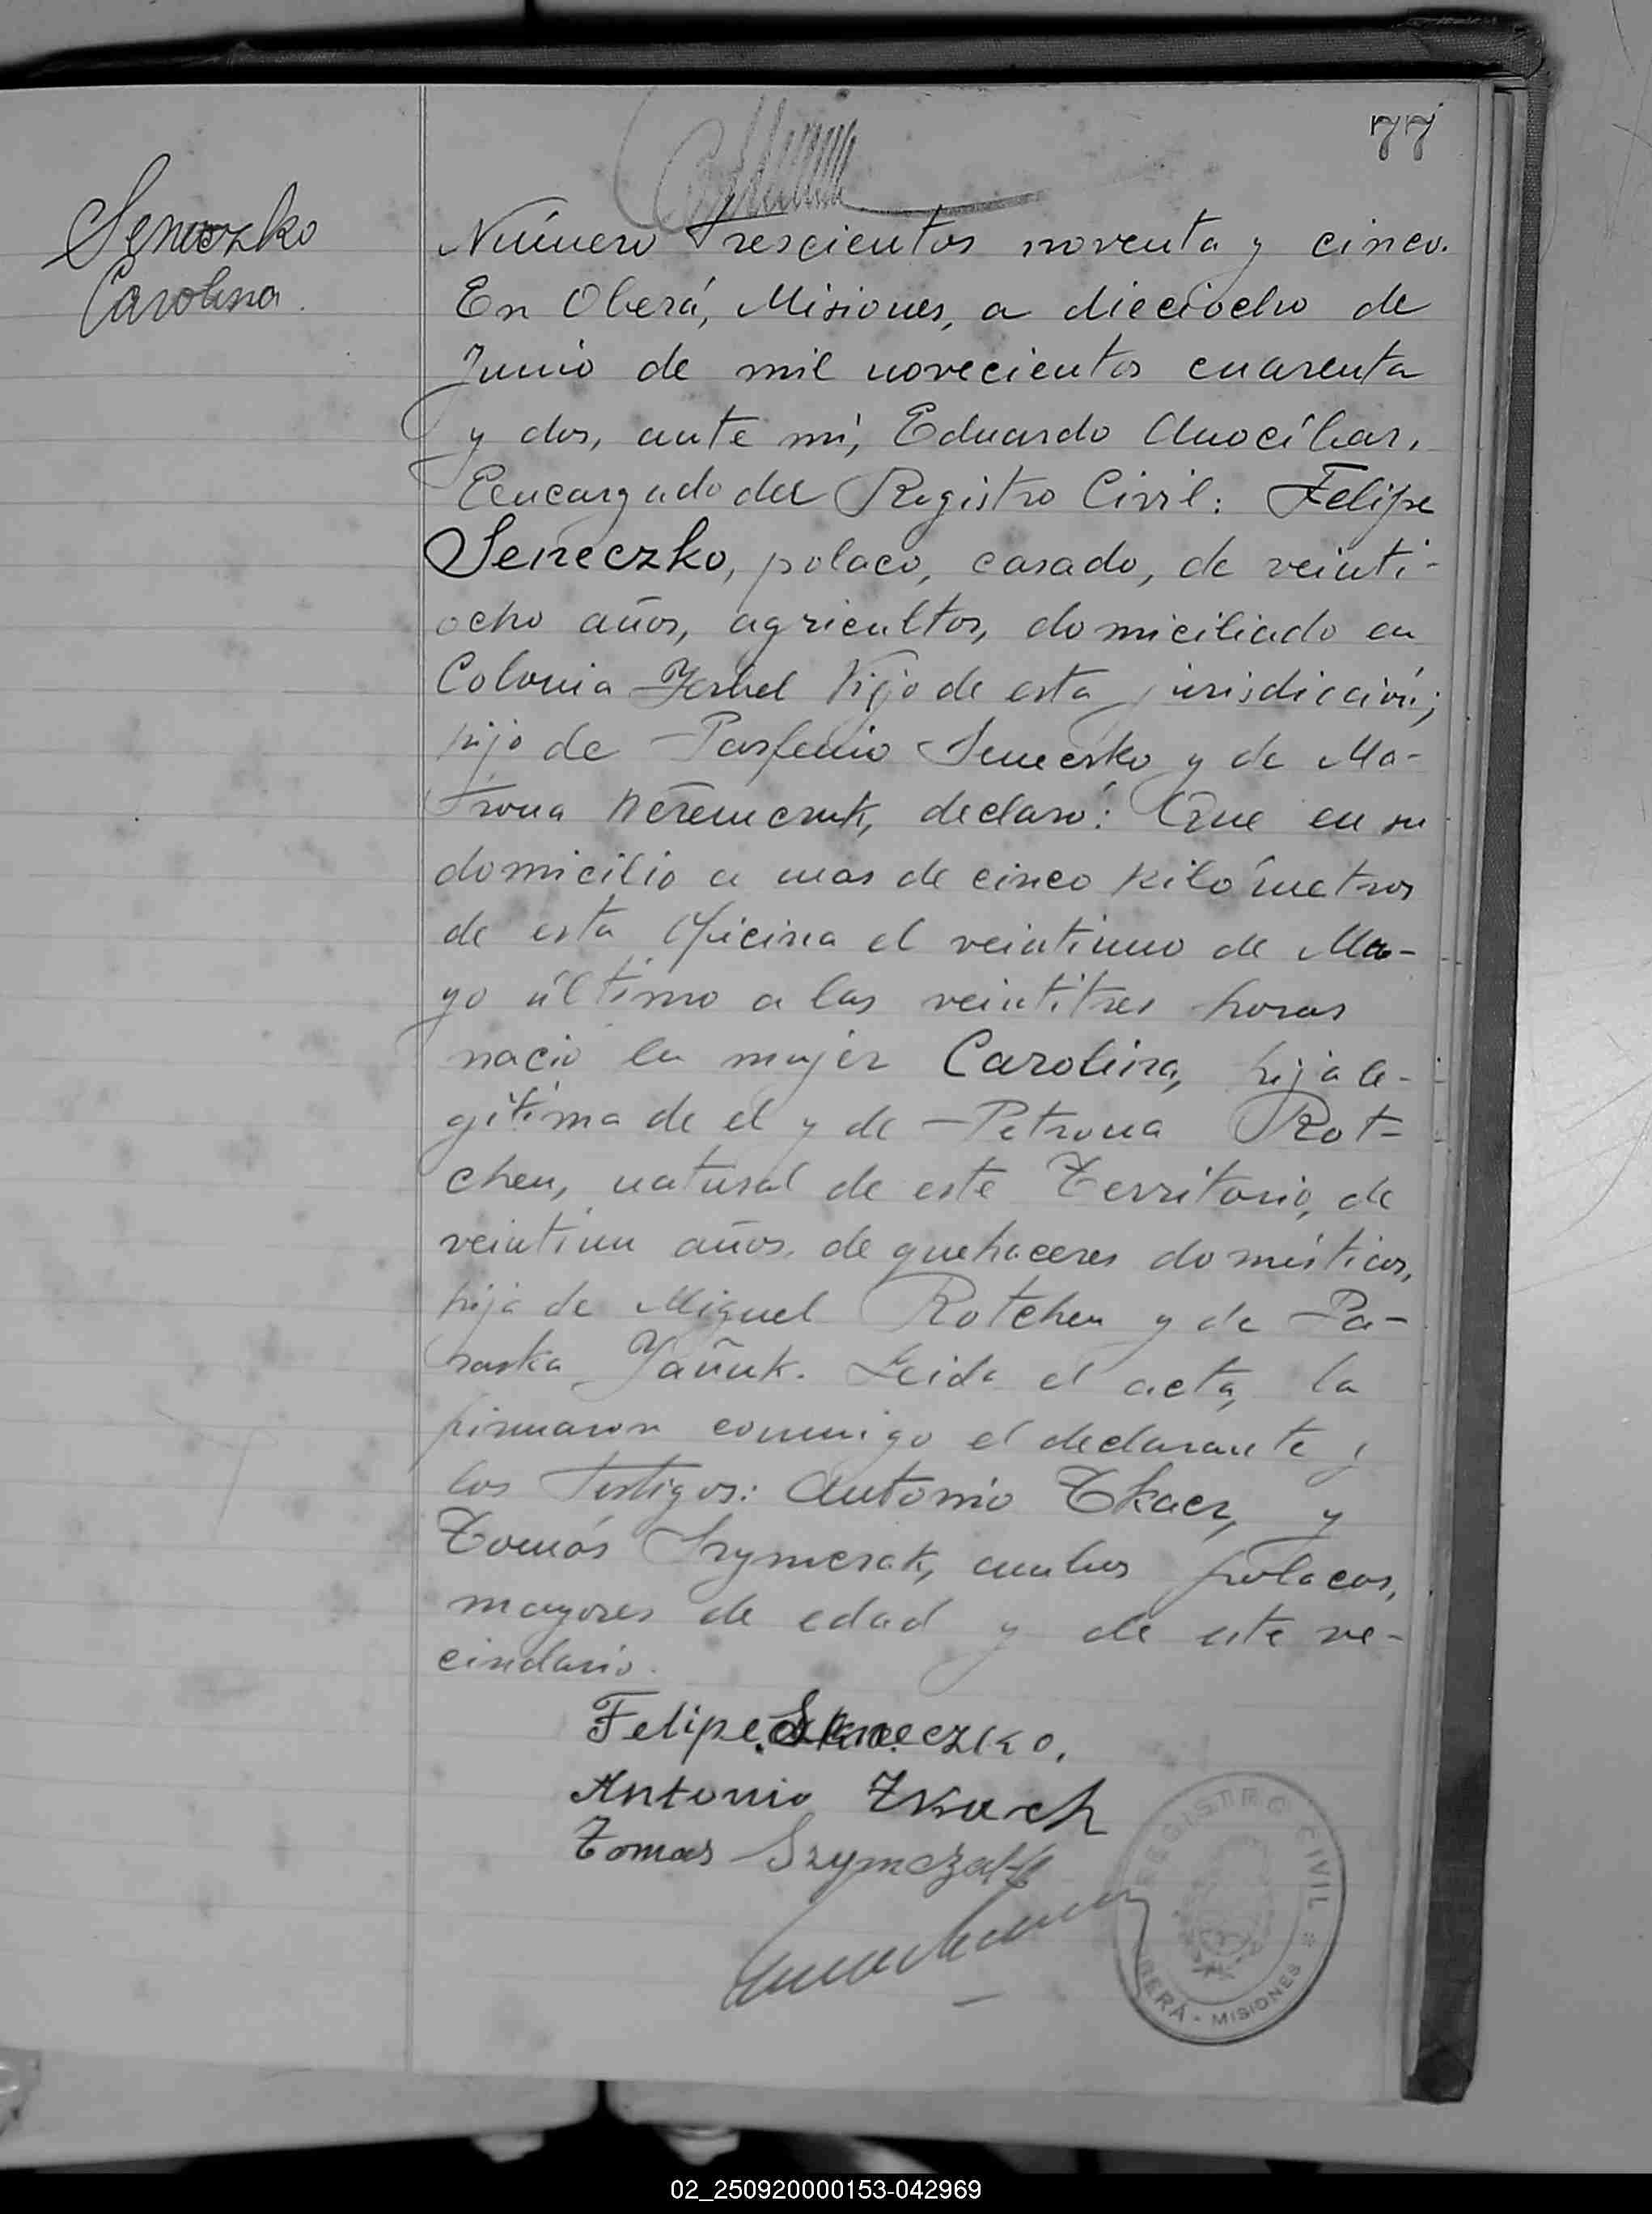 77
Seneczko
Carolina.
Número Trescientos noventa y cinco.
En Oberá, Misiones, a dieciocho de
Junio de mil novecientos cuarenta
y dos, ante mí, Eduardo Anocíbar,
Encargado del Registro Civil: Felipe
Seneczko, polaco, casado, de veinti-
ocho años, agricultor, domiciliado en
Colonia Yerbal Viejo de esta jurisdicción;
hijo de Parfenio Senesko y de Ma-
trona Weremczuk, declaró: Que en su
domicilio a mas de cinco kilómetros
de esta Oficina el veintiuno de Ma-
yo último a las veintitres horas
nació la mujer Carolina, hija le-
gítima de el y de Petrona Rot-
chen, natural de este Territorio, de
veintiun años, de quehaceres domésticos,
hija de Miguel Rotchen y de Pa-
raska Yañuk. Leida el acta, la
firmaron conmigo el declarante y
los testigos: Antonio Tkacz, y
Tomás Szymczak, ambos polacos,
mayores de edad y de este ve-
cindario.
Felipe Seneczko.
Antonio Tkach
Tomas Szymczak
REGISTRO CIVIL * OBERÁ - MISIONES
02_250920000153-042969